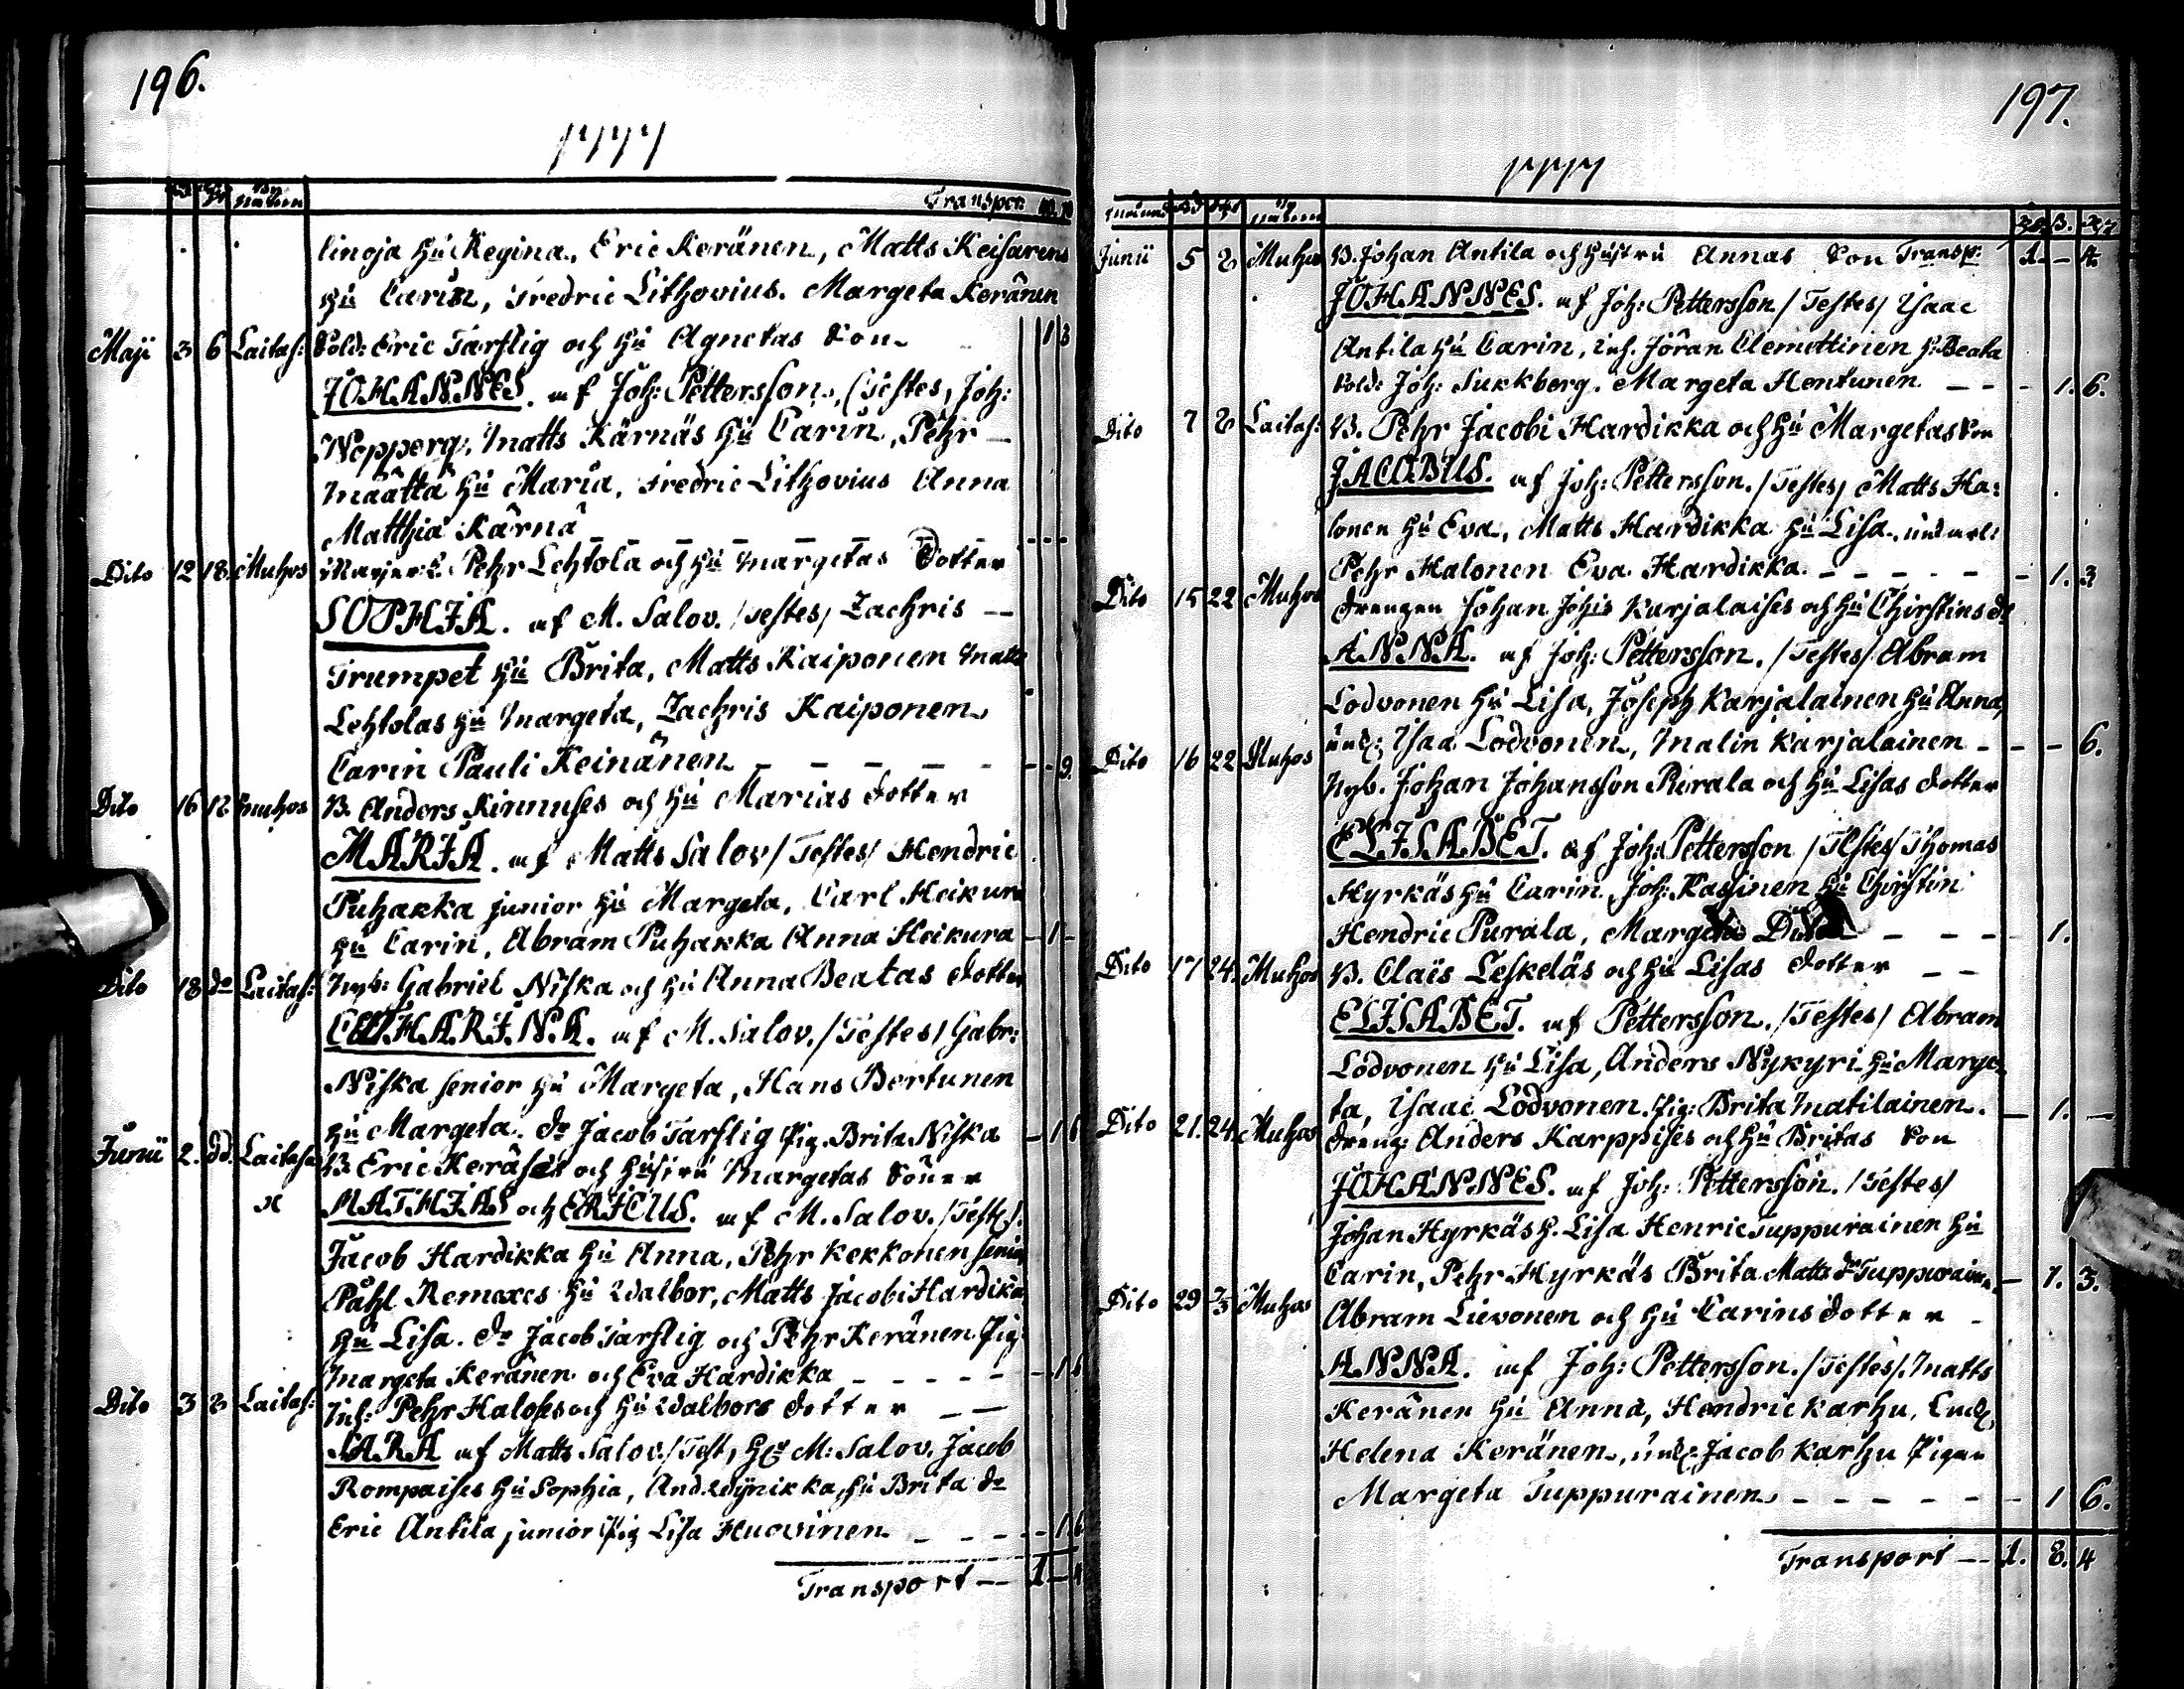 196.
1777
Transport
linoja hu Regina, Eric Keränen, Matts Keisarens
hu Carin, Fredric Lithovius. Margeta Keränen
Maji 3 6 Laitas: Sold: Eric Tarflig och hu Agnetas Son 1 3
JOHANNES. af Joh: Pettersson, (Testes, Joh:
Nopperg, Matts Kärnäs hu Carin, Pehr
Määttä hu Maria, Fredric Lithovius Anna
Matthiä Kärnä
Dito 12 18 Muhos Pehr Lehtola och hu Margetas Dotter
SOPHIA. af M. Salov. /Testes/ Zachris
Trumpet hu Brita, Matts Kaiponen Matts
Lehtolas hu Margeta, Zachris Kaiponen
Carin Pauli Keinänen 9.
Dito 16 18 Muhos B. Anders Kinnuses och hu Marias dotter
MARIA. af Matts Salov /Testes/ Hendric
Puhakka junior hu Margeta, Carl Heikura
hu Carin, Abram Puhakka Anna Heikura – 1 –
Dito 18 do Laitas: Nyb: Gabriel Niska och hu Anna Beatas dotter
CATHARINA. af M. Salov. /Testes/ Gabr:
Niska senior hu Margeta, Hans Bertunen
hu Margeta. dr Jacob Tarflig Pig. Brita Niska – 1 6
Junii 2. dd. Laitas: B. Eric Keräses och hustru Margetas Söner
x MATHIAS och ERICUS. af M. Salov. /Testes/.
Jacob Hardikka hu Anna, Pehr Kekkonen senior
Påhl Remexes hu Walbor, Matts Jacobi Hardikka
hu Lisa. dr Jacob Tarflig och Pehr Keränen Pig:
Margeta Keränen och Eva Hardikka – 1 6
Dito 3 8 Laitas: Inh: Pehr Halos och hu Walbors dotter
SARA af Matts Salov. /Test, Hr M: Salov. Jacob
Rompaises hu Sophia, And. Wynikka, hu Brita dr
Eric Antila junior Pig Lisa Huovinen – 1. 6
Transport — 1 – 4
197.
1777
Junii 5 8 Muhos B. Johan Antila och Hustru Annas Son Transp: 1 – 4.
JOHANNES. af Joh: Pettersson /Testes/ Isaac
Antila hu Carin, inh. Jöran Clemettinen h: Beata
Sold: Joh: Sukkberg. Margeta Hentunen – 1. 6.
Dito 7 8 Laitas: B. Pehr Jacobi Hardikka och hu Margetas Son
JACOBUS. af Joh: Pettersson. /Testes/ Matts Ha:
lonen hu Eva, Matts Hardikka hu Lisa,
Pehr Halonen Eva Hardikka. – 1. 3
Dito 15 22 Muhos drengen Johan Johis Karjalaises och hu Chirstins dr
ANNA. af Joh: Pettersson. /Testes/ Abram
Lodvonen hu Lisa, Joseph Karjalainen hu Anna,
Isaac Lodvonen, Malin Karjalainen – – 6.
Dito 16 22 Muhos Nyb. Johan Johansson Purala och hu Lisas dotter
ELISABET. af Joh: Pettersson /Testes/ Thomas
Hyrkäs hu Carin, Joh: Kassinen hu Chirstin
Hendric Purala, Margeta Dito – 1.
Dito 17 24. Muhos B. Clais Leskeläs och hu Lisas dotter
ELISABET. af Pettersson. /Testes/ Abram
Lodvonen hu Lisa, Anders Nykyri hu Marge-
ta, Isaac Lodvonen. Pig: Brita Matilainen. – 1. –
Dito 21. 24. Muhos dreng: Anders Karppises och hu Britas Son
JOHANNES. af Joh: Pettersson. /Testes/
Johan Hyrkäs h. Lisa Henric Tuppurainen hu
Carin, Pehr Hyrkäs Brita Matts dr Tuppurainen – 1. 3.
Dito 29 Muhos Abram Lievonen och hu Carins dotter
ANNA. af Joh: Pettersson. /Testes/. Matts
Keränen hu Anna, Hendric Karhu,
Helena Keränen, Jacob Karhu Pigan
Margeta Tuppurainen – 1 6.
Transport — 1. 8. 4